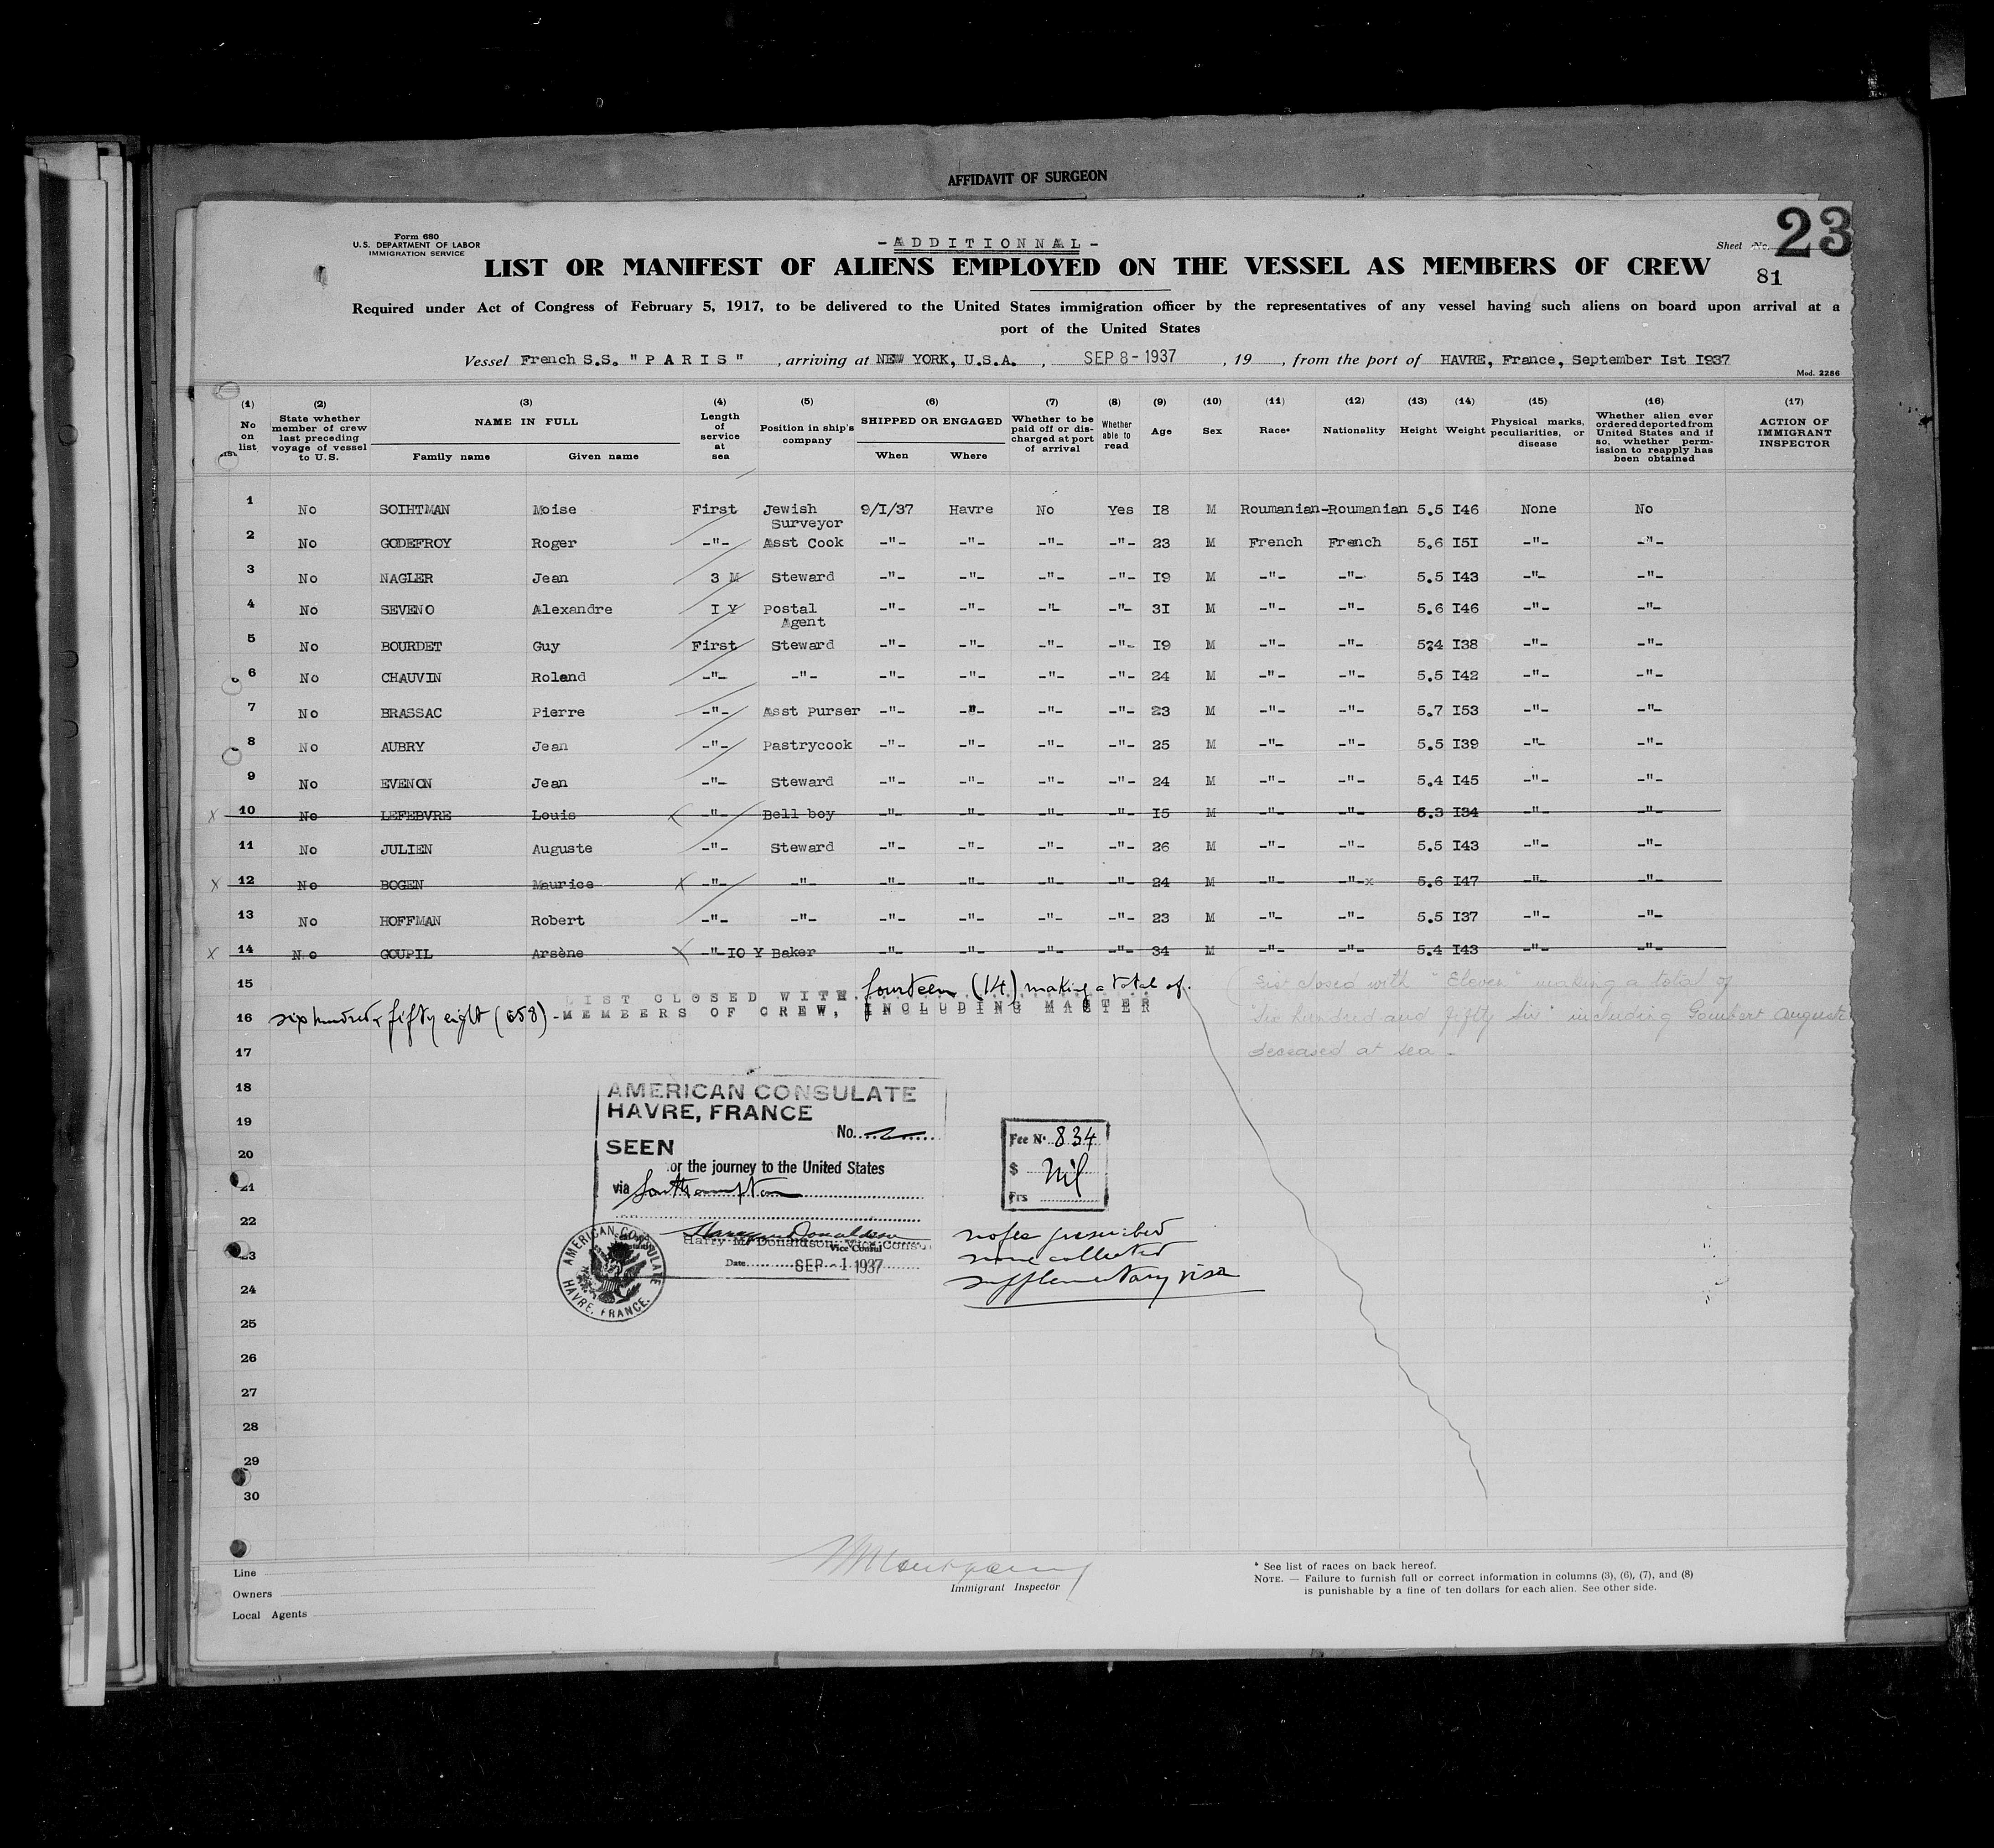 AFFIDAVIT OF SURGEON
23
Form 680
U.S. DEPARTMENT OF LABOR
IMMIGRATION SERVICE
-ADDITIONNAL-
Sheet No.
LIST OR MANIFEST OF ALIENS EMPLOYED ON THE VESSEL AS MEMBERS OF CREW
81
Required under Act of Congress of February 5, 1917, to be delivered to the United States immigration officer by the representatives of any vessel having such aliens on board upon arrival at a
port of the United States
Vessel French S.S. "PARIS" , arriving at NEW YORK, U.S.A. , SEP 8-1937 , 19 , from the port of HAVRE, France, September Ist I937
Mod. 2286
(1) No on list
(2) State whether member of crew last preceding voyage of vessel to U.S.
(3) NAME IN FULL Family name Given name
(4) Length of service at sea
(5) Position in ship's company
(6) SHIPPED OR ENGAGED When Where
(7) Whether to be paid off or discharged at port of arrival
(8) Whether able to read
(9) Age
(10) Sex
(11) Race*
(12) Nationality
(13) Height
(14) Weight
(15) Physical marks, peculiarities, or disease
(16) Whether alien ever ordered deported from United States and if so, whether permission to reapply has been obtained
(17) ACTION OF IMMIGRANT INSPECTOR
1 No SOIHTMAN Moise First Jewish Surveyor 9/I/37 Havre No Yes I8 M Roumanian-Roumanian 5.5 I46 None No
2 No GODEFROY Roger -"- Asst Cook -"- -"- -"- -"- 23 M French French 5.6 I5I -"- -"-
3 No NAGLER Jean 3 M Steward -"- -"- -"- -"- I9 M -"- -"- 5.5 I43 -"- -"-
4 No SEVENO Alexandre I Y Postal Agent -"- -"- -"- -"- 3I M -"- -"- 5.6 I46 -"- -"-
5 No BOURDET Guy First Steward -"- -"- -"- -"- I9 M -"- -"- 5.4 I38 -"- -"-
6 No CHAUVIN Roland -"- -"- -"- -"- -"- -"- 24 M -"- -"- 5.5 I42 -"- -"-
7 No BRASSAC Pierre -"- Asst Purser -"- -"- -"- -"- 23 M -"- -"- 5.7 I53 -"- -"-
8 No AUBRY Jean -"- Pastrycook -"- -"- -"- -"- 25 M -"- -"- 5.5 I39 -"- -"-
9 No EVENON Jean -"- Steward -"- -"- -"- -"- 24 M -"- -"- 5.4 I45 -"- -"-
X 10 No LEFEBVRE Louis X -"- Bell boy -"- -"- -"- -"- I5 M -"- -"- 5.3 I34 -"- -"-
11 No JULIEN Auguste -"- Steward -"- -"- -"- -"- 26 M -"- -"- 5.5 I43 -"- -"-
X 12 No BOGEN Maurice X -"- -"- -"- -"- -"- -"- 24 M -"- -"-x 5.6 I47 -"- -"-
13 No HOFFMAN Robert -"- -"- -"- -"- -"- -"- 23 M -"- -"- 5.5 I37 -"- -"-
X 14 No GOUPIL Arsène X -"-IO Y Baker -"- -"- -"- -"- 34 M -"- -"- 5.4 I43 -"- -"-
15 LIST CLOSED WITH fourteen (14) making a total of
16 six hundred fifty eight (658) -MEMBERS OF CREW, INCLUDING MASTER
closed with "Eleven" making a total of
"Six hundred and fifty Six" including Gombert Auguste
deceased at sea -
17
18
19
20
21
22
23
24
25
26
27
28
29
30
AMERICAN CONSULATE
HAVRE, FRANCE
No.
SEEN
or the journey to the United States
via Southampton
Harry M. Donaldson, Vice Consul
Vice Consul
Date SEP -1 1937
AMERICAN CONSULATE HAVRE, FRANCE.
Fee No. 834
$ Nil
Frs
no fee prescribed
none collected
supplementary visa
Line
Owners
Local Agents
Immigrant Inspector
* See list of races on back hereof.
NOTE. — Failure to furnish full or correct information in columns (3), (6), (7), and (8)
is punishable by a fine of ten dollars for each alien. See other side.